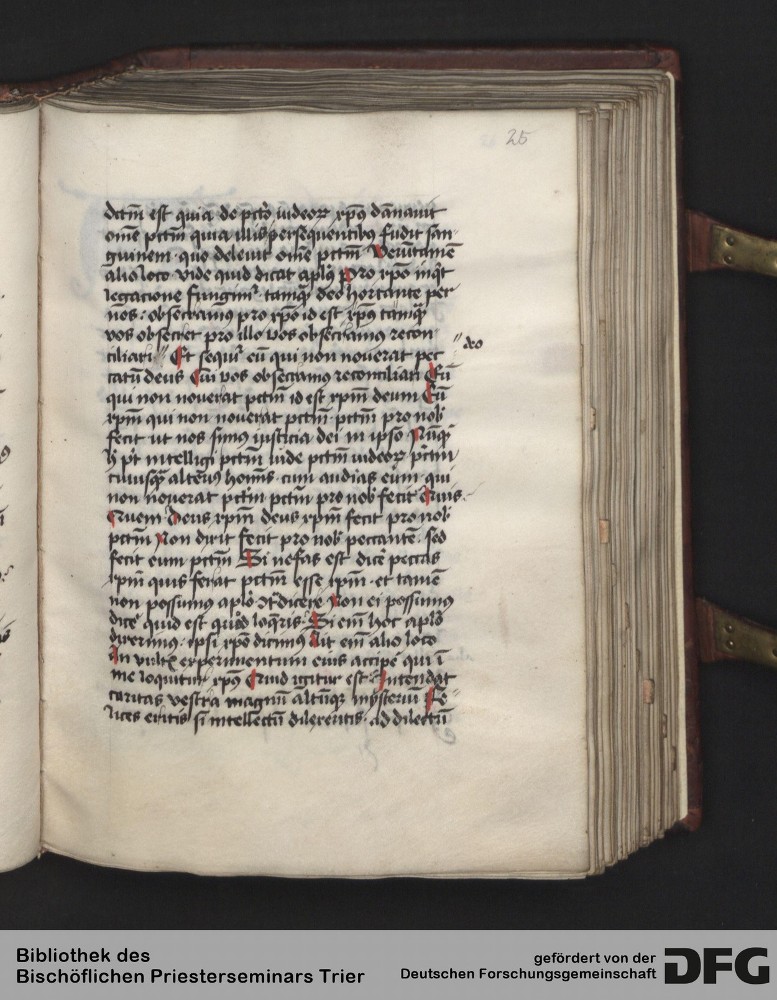 25
dictū est quia de pctō iudeoꝝ xp̄us dāpnauit
om̄e pctm̄ quia illis persequentibꝰ fudit san
guinem quo deleuit om̄e pctm̄ Verūtamē
alio loco vide quid dicat apl̄us Pro xp̄o inqͥt
legatione fungimͬ tamqͣ deo hortante per
nos obsecramus pro xp̄o id est xp̄us tamqͣ
vos obsecret pro illo vos obsecramus recon
ciliari deo
Et sequitͬ eū qui non nouerat pec
catū deus Cui vos obsecramus reconciliari Eū
qui non nouerat pctm̄ id est xp̄m deum Eū
xp̄m qui non nouerat pctm̄ pctm̄ pro nob̄
fecit ut nos simus iusticia dei in ip̄so Nūqͥd
h̄ pt̄ intelligi pctm̄ iude pctm̄ iudeoꝝ pctm̄
cuiusqͣ alteriꝰ hoīnis cum audias eum qui
non nouerat pctm̄ pctm̄ pro nob̄ fecit Quis
Quem Deus xp̄m deus xp̄m fecit pro nob̄
pctm̄ Non dixit fecit pro nob̄ peccantē sed
fecit eum pctm̄ Si nefas est dicē peccas
xp̄m quis ferat pctm̄ esse xp̄m et tamē
non possumus apl̄o 9tͣdicere Non ei possumus
dicē quid est quod loqͣris Si em̄ hoc apl̄o
dixerimus ip̄si xp̄o dicimus Ait em̄ alio loco
An vultꝭ experimentum eius accipē qui ī
me loquitur xp̄us Quid igitur est Intendat
caritas vestra magnū altūqꝫ mysteriū Fe
lices eritis si intellectū dilexeritis ad dilectū
Bibliothek des
Bischöflichen Priesterseminars Trier
gefördert von der
Deutschen Forschungsgemeinschaft
DFG